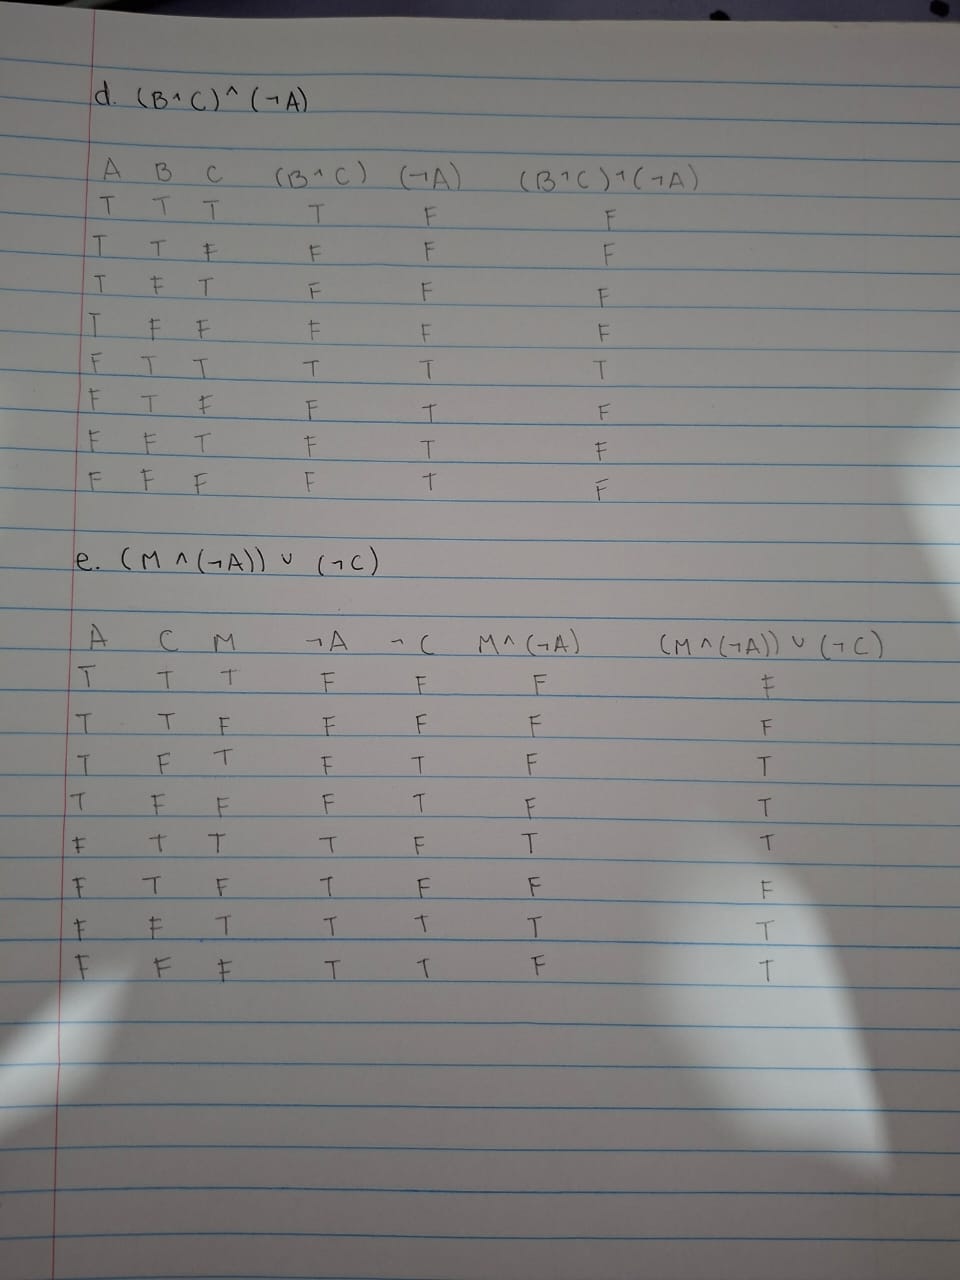 d. (B^C)^(¬A)
A B C (B^C) (¬A) (B^C)^(¬A)
T T T T F F
T T F F F F
T F T F F F
T F F F F F
F T T T T T
F T F F T F
F F T F T F
F F F F T F
e. (M ^ (¬A)) ∨ (¬C)
A C M ¬A ¬C M^(¬A) (M^(¬A)) ∨ (¬C)
T T T F F F F
T T F F F F F
T F T F T F T
T F F F T F T
F T T T F T T
F T F T F F F
F F T T T T T
F F F T T F T